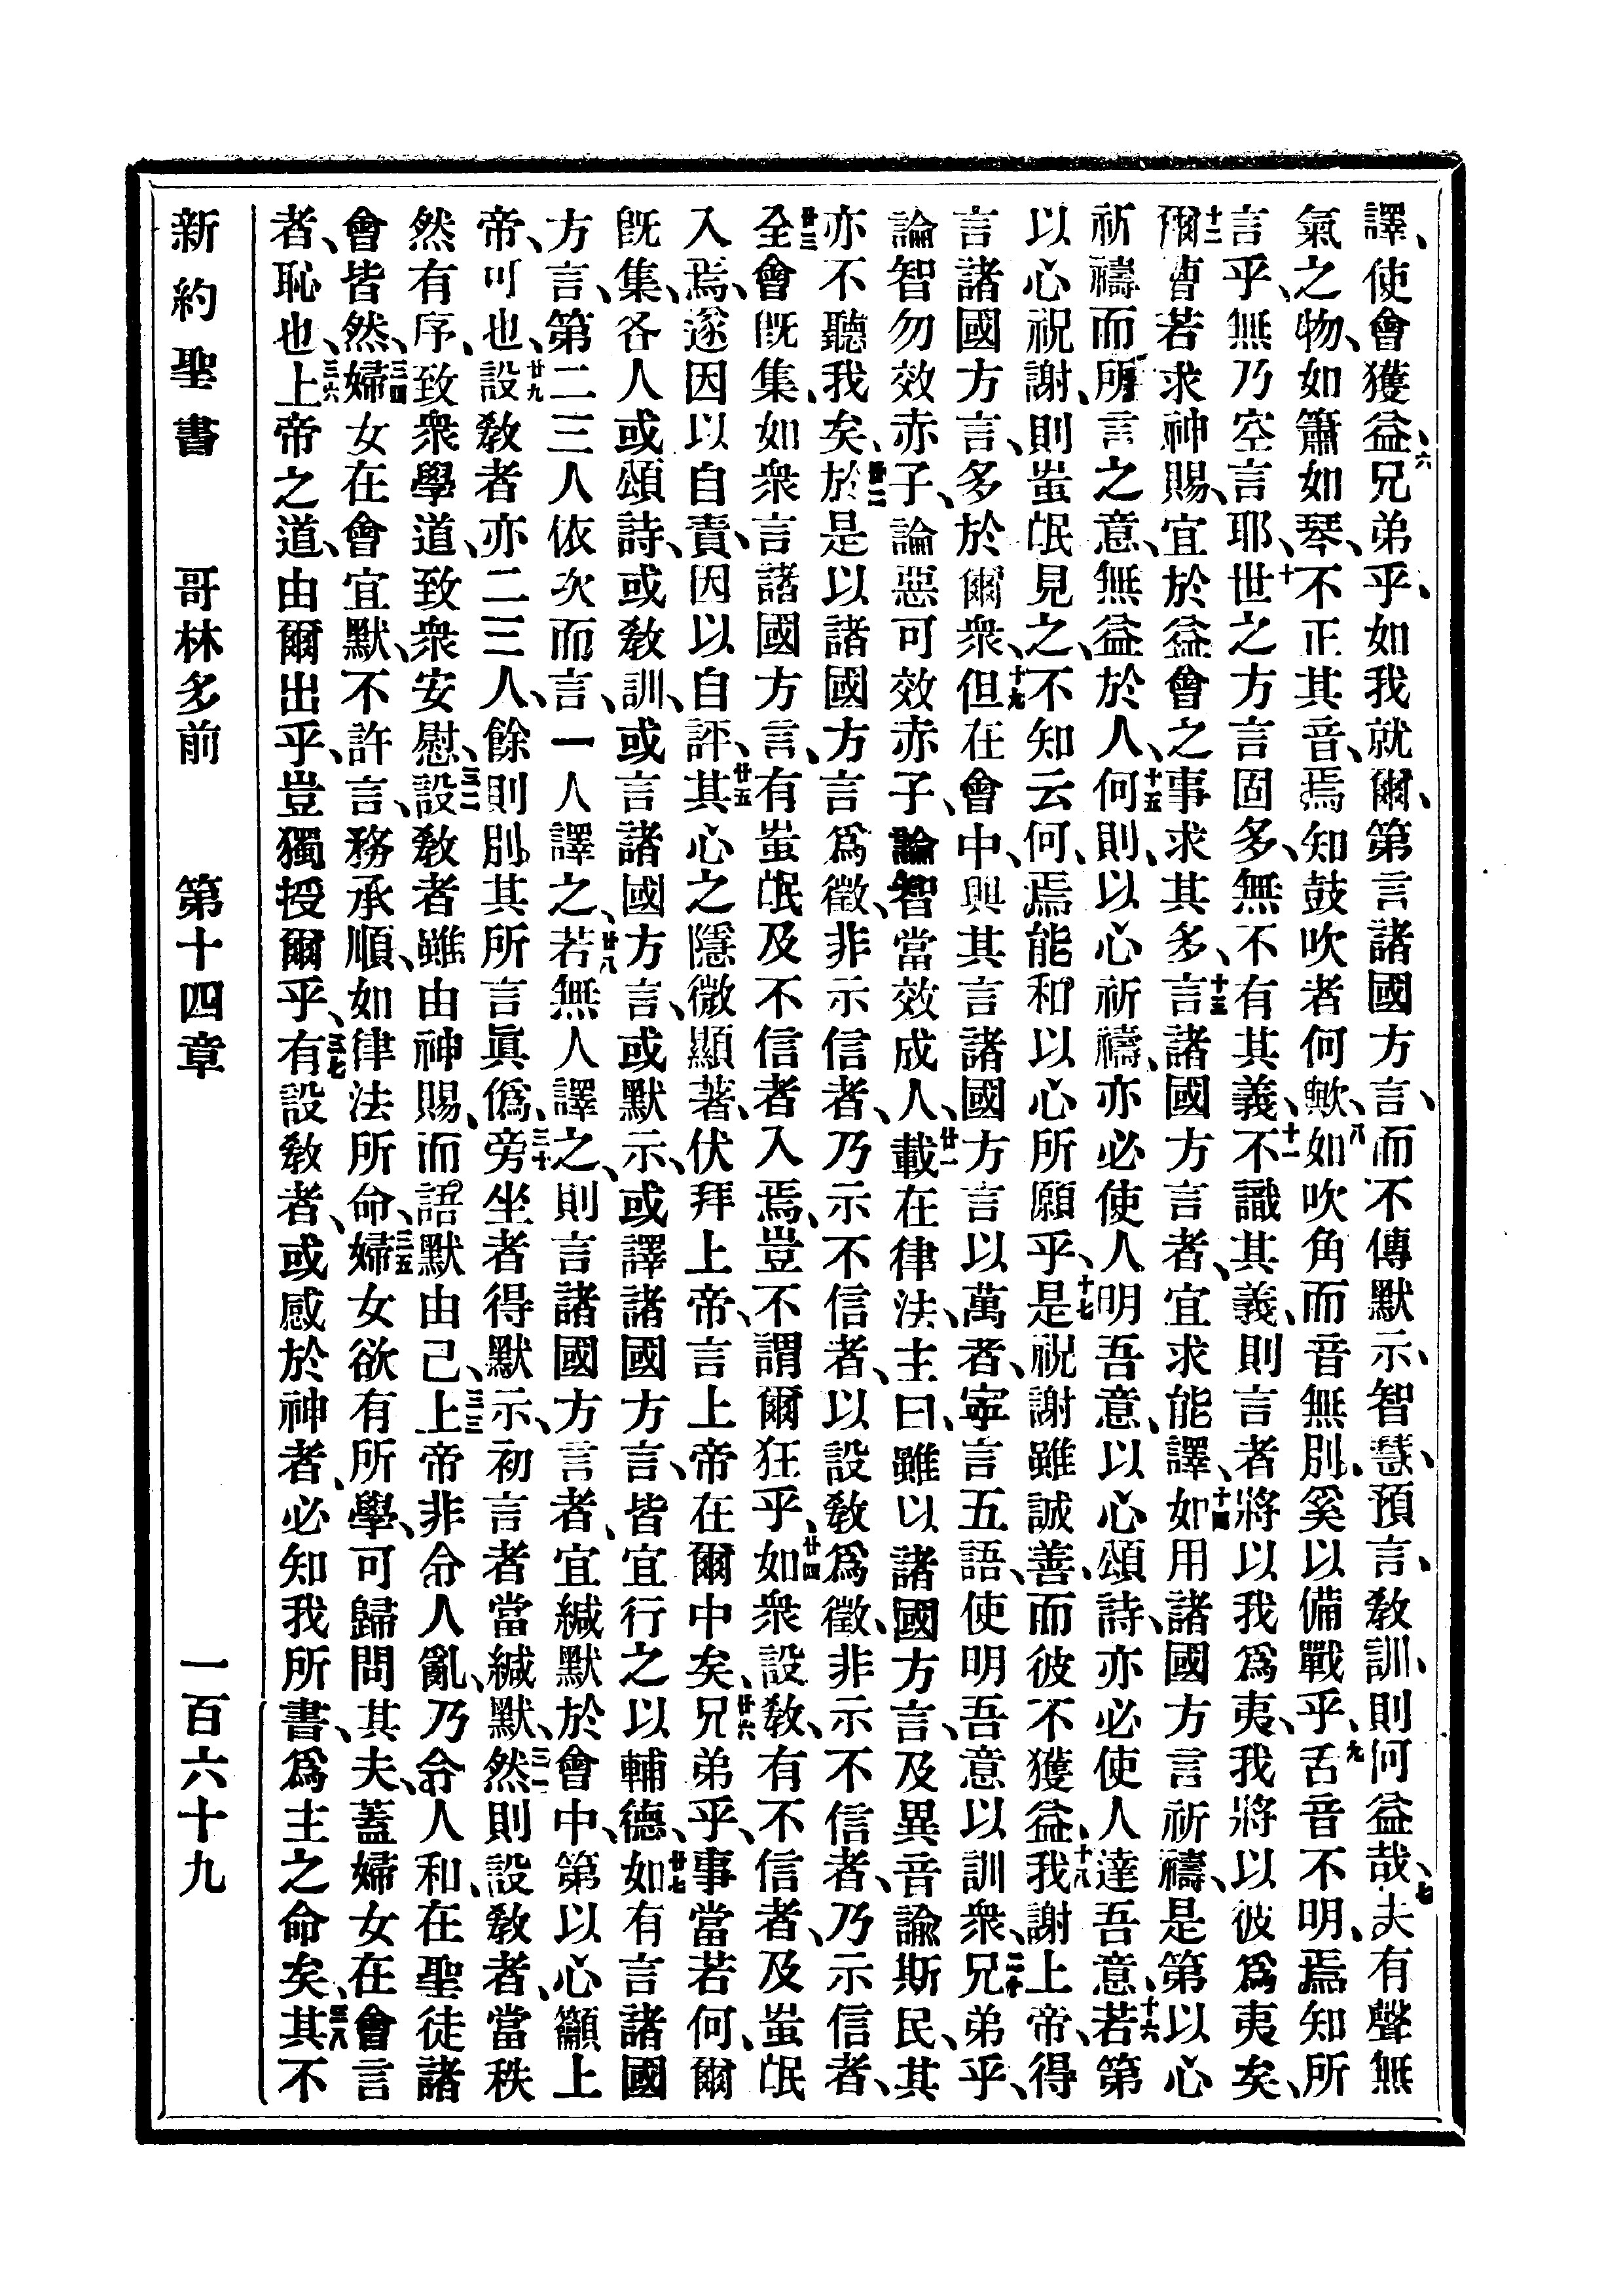 譯、使會獲益、六兄弟乎、如我就爾、第言諸國方言、而不傳默示、智慧、預言、教訓、則何益哉、七夫有聲無
氣之物、如簫如琴、不正其音、焉知鼓吹者何歟、八如吹角而音無別、奚以備戰乎、九舌音不明、焉知所
言乎、無乃空言耶、十世之方言固多、無不有其義、十一不識其義、則言者將以我爲夷、我將以彼爲夷矣、
十二爾曹若求神賜、宜於益會之事求其多、十三言諸國方言者、宜求能譯、十四如用諸國方言祈禱、是第以心
祈禱而所言之意、無益於人、十五何則、以心祈禱、亦必使人明吾意、以心頌詩、亦必使人達吾意、十六若第
以心祝謝、則蚩氓見之、不知云何、焉能和以心所願乎、十七是祝謝雖誠善、而彼不獲益、十八我謝上帝、得
言諸國方言、多於爾衆、十九但在會中、與其言諸國方言以萬者、寧言五語、使明吾意以訓衆、二十兄弟乎、
論智勿效赤子、論惡可效赤子、論智當效成人、廿一載在律法、主曰、雖以諸國方言、及異音諭斯民、其
亦不聽我矣、廿二於是以諸國方言爲徵、非示信者、乃示不信者、以設教爲徵、非示不信者、乃示信者、
廿三全會既集、如衆言諸國方言、有蚩氓及不信者入焉、豈不謂爾狂乎、廿四如衆設教、有不信者、及蚩氓
入焉、遂因以自責、因以自評、廿五其心之隱微顯著、伏拜上帝、言上帝在爾中矣、廿六兄弟乎、事當若何、爾
既集、各人或頌詩、或教訓、或言諸國方言、或默示、或譯諸國方言、皆宜行之以輔德、廿七如有言諸國
方言、第二三人依次而言、一人譯之、廿八若無人譯之、則言諸國方言者、宜緘默於會中、第以心籲上
帝、可也、廿九設教者亦二三人、餘則別其所言眞僞、三十旁坐者得默示、初言者當緘默、三一然則設教者、當秩
然有序、致衆學道、致衆安慰、三二設教者雖由神賜、而語默由己、三三上帝非令人亂、乃令人和、在聖徒諸
會皆然、三四婦女在會宜默、不許言、務承順、如律法所命、三五婦女欲有所學、可歸問其夫、蓋婦女在會言
者、恥也、三六上帝之道、由爾出乎、豈獨授爾乎、三七有設教者、或感於神者、必知我所書、爲主之命矣、三八其不
新約聖書 哥林多前 第十四章 一百六十九